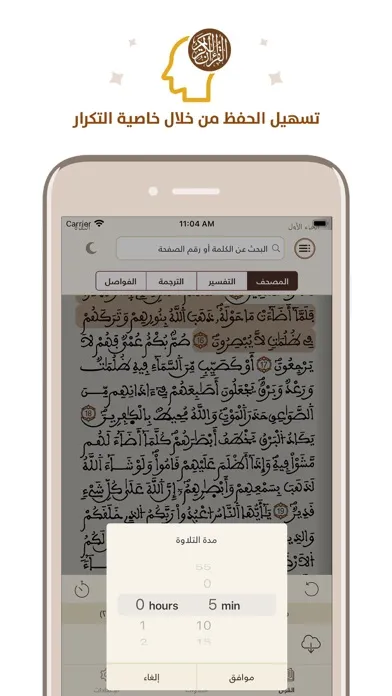 القرآن الكريم
تسهيل الحفظ من خلال خاصية التكرار
Carrier
11:04 AM
الجزء الأول
البحث عن الكلمة أو رقم الصفحة
المصحف
التفسير
الترجمة
الفواصل
فَلَمَّا أَضَاءَتْ مَا حَوْلَهُ ذَهَبَ اللَّهُ بِنُورِهِمْ وَتَرَكَهُمْ
فِي ظُلُمَاتٍ لَّا يُبْصِرُونَ 16 صُمٌّ بُكْمٌ عُمْيٌ فَهُمْ لَا
يَرْجِعُونَ 17 أَوْ كَصَيِّبٍ مِّنَ السَّمَاءِ فِيهِ ظُلُمَاتٌ
وَرَعْدٌ وَبَرْقٌ يَجْعَلُونَ أَصَابِعَهُمْ فِي آذَانِهِم مِّنَ
الصَّوَاعِقِ حَذَرَ الْمَوْتِ وَاللَّهُ مُحِيطٌ بِالْكَافِرِينَ 18
يَكَادُ الْبَرْقُ يَخْطَفُ أَبْصَارَهُمْ كُلَّمَا أَضَاءَ لَهُم
مَّشَوْا فِيهِ وَإِذَا أَظْلَمَ عَلَيْهِمْ قَامُوا وَلَوْ شَاءَ اللَّهُ
لَذَهَبَ بِسَمْعِهِمْ وَأَبْصَارِهِمْ إِنَّ اللَّهَ عَلَىٰ كُلِّ شَيْءٍ
قَدِيرٌ 19 يَا أَيُّهَا النَّاسُ اعْبُدُوا رَبَّكُمُ الَّذِي خَلَقَكُمْ
وَالَّذِينَ
لَكُمُ
مدة التلاوة
55
0
0 hours 5 min
1 10
2 15
إلغاء موافق